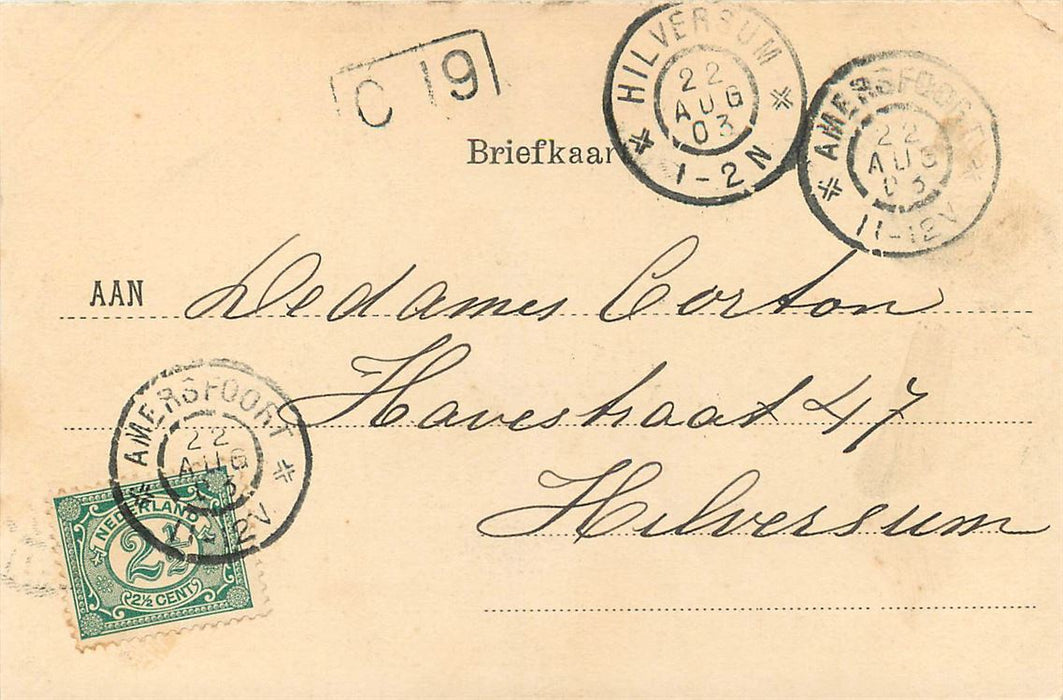 C 19
HILVERSUM
22
AUG
03
1-2N
AMERSFOORT
22
AUG
03
11-12V
Briefkaar
AAN Dedames Corton
Havestraat 47
Hilversum
AMERSFOORT
22
AUG
03
11-12V
NEDERLAND
2½
2½ CENT